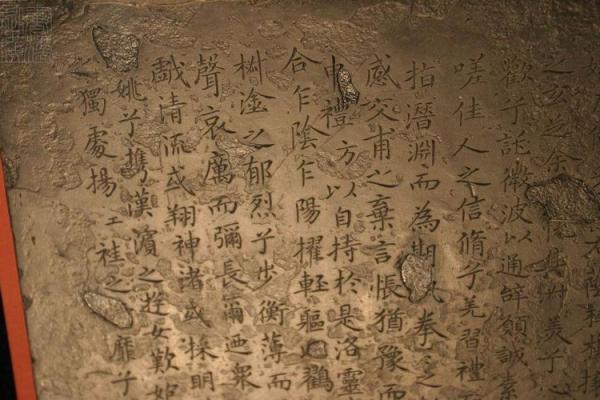 之玄芝余其美子心
歡兮託微波以通辭願誠素
嗟佳人之信脩兮羌習禮
指潛淵而為期執拳之
感交甫之棄言悵猶豫而
禮方以自持於是洛靈
合乍陰乍陽擢輕軀以鶴
椒塗之郁烈兮步衡薄而
聲哀厲而彌長爾迺衆
戲清流或翔神渚或採明
姚兮攜漢濱之遊女歎
之獨處揚袿之靡兮